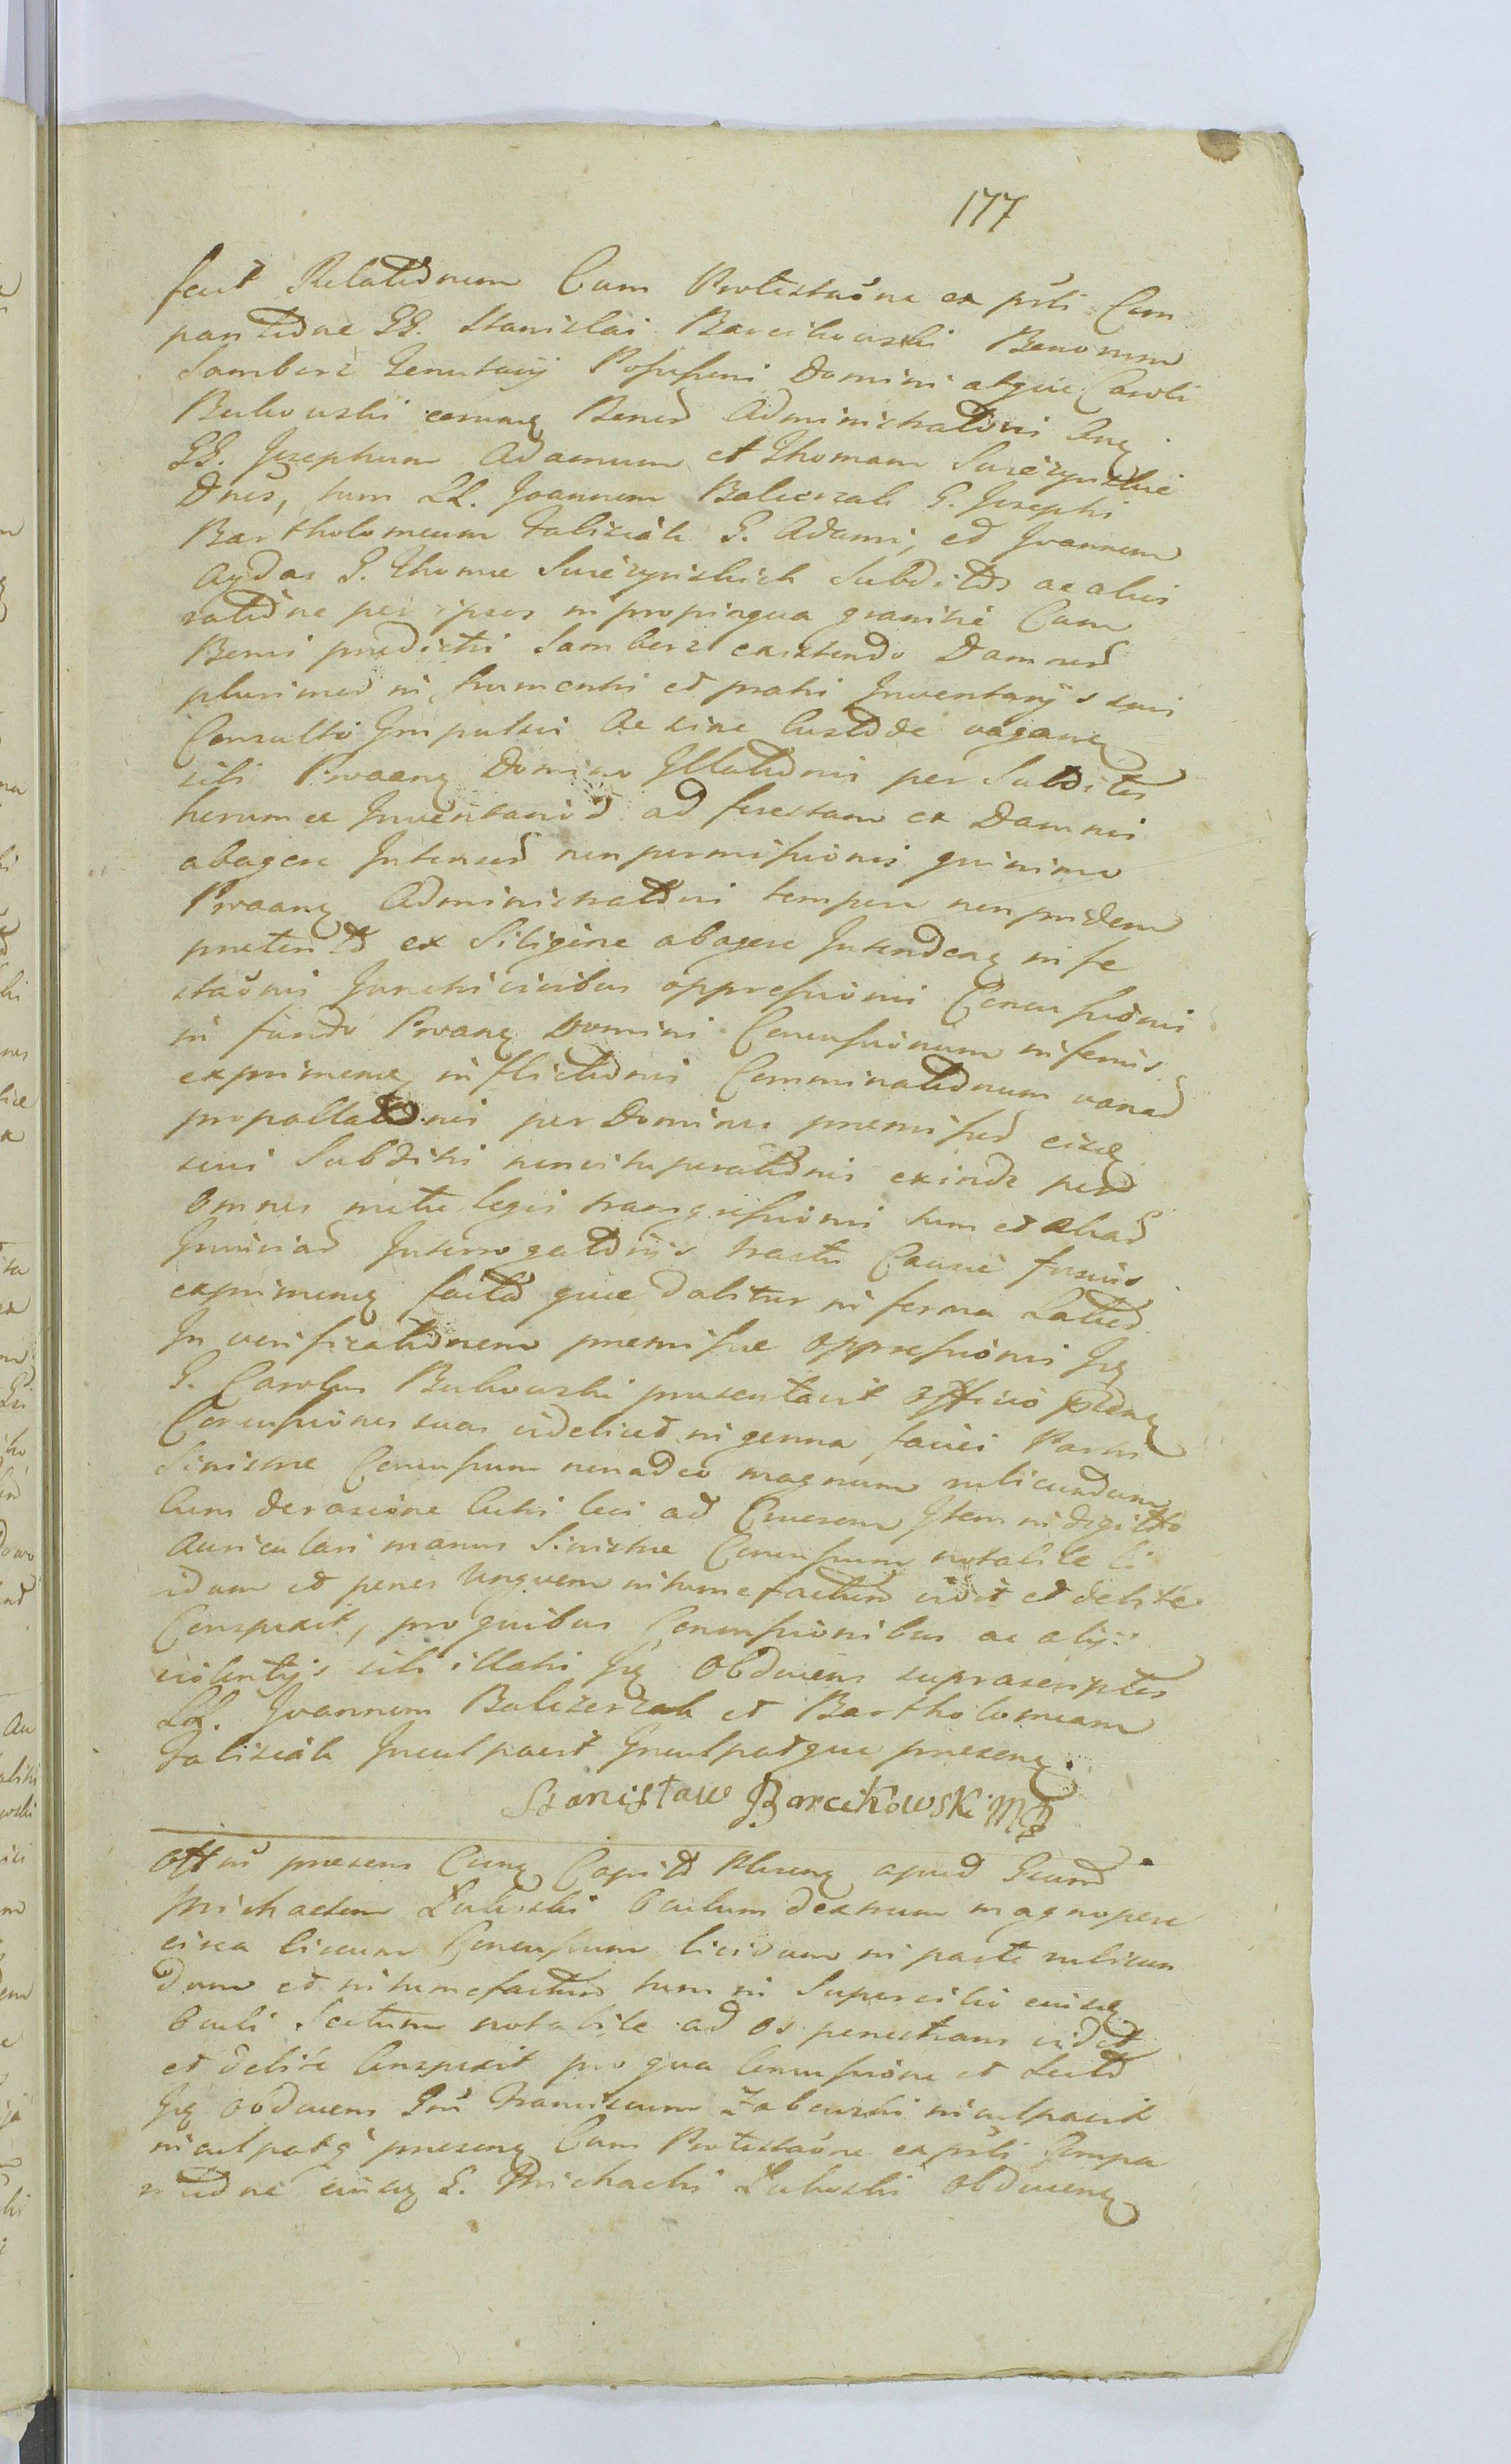 177
fecit Relationem Cum Protestaõne ex pãrti Com
paritione GG. Stanislai Barcikowski Bonorum
Samborz Tenutarij Possessoris Domini atque Caroli
Bukowski eorunq Bonor Administratoris Anq
GG. Josephum Adamum et Thomam Sureẏnskie
Dnos, tum LL. Joannem Balcerzak G. Josephi
Bartholomeum Falisiak G. Adami, et Joannem
Aydas G. Thomæ Surezynskich Subditos ac alios
ratione per ipsos in propinqua granitie Cum
Bonis prædictis Samborz existendo Damnor
plurimor in frumentis et pratis Inventarijs suis
Consulto Impulsis ac sine Custode vaganq
sibi Prvaanq Domino Illationis per Subditos
horum ex Inventarior ad forestam ex Damnis
abagere Intensor non permissionis quinimo
Prvaanq Administratori tempore non pridem
præterito ex Siligine abagere Intendenq infe
staõnis Junctis viribus oppressionis Concussionis
in fundo Prvanq Domini Concussionum inferius
exprimenq inflictionis Comminationum variar
propallationis per Dominos præmissor eisq
suis Subditis non vituperationis exinde per
omnes metu legis transgressionis tum et aliar
Iniuriar Interrogatorijs tractu Causæ fusius
exprimenq factor quæ dabitur in forma Latior
In verificationem præmissæ oppressionis Iꝗ
G. Carolus Bukowski præsentavit Officio ptõnq
Concussiones suas videlicet in genna faciei Partis
Sinistræ Concussum non adeo magnum rubicundum
Cum derasione Cutis loci ad Cruorem Item in digitto
Auriculari manus Sinistræ Concussum notabile li
vidum et penes Unguem intumefactum vidit et debite
Conspexit, pro quibus Concussionibus ac alijs
violentijs sibi illatis Iꝗ Obducens suprascriptos
LL. Joannem Balcerzak et Bartholomeum
Falisiak Inculpavit Inculpatque præsenq.
Stanisław Barcikowski mp
Offm præsens Cunq Capite Plurunq apud Gnum
Michaelem Łukoski Oculum dextrum magnopere
circa Concussum lividum in parte rubicun
dum et intumefactum tum in Supercilio eiusq
Oculi Sectum notabile ad os penetrans vidit
et debite Conspexit pro qua Concussione et Secto
Iꝗ Obducens Gnũ Franciscum Zabouski inculpavit
inculpatq præsenq Cum Protestaõne ex pãrti Compa
ritione eiusq G. Michaelis Łukoski Obducenq